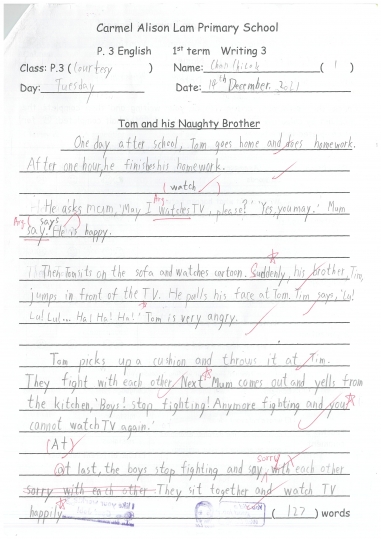 Carmel Alison Lam Primary School
P. 3 English 1st term Writing 3
Class: P.3 (Courtesy ) Name: Chan ( 1 )
Day: Tuesday Date: 14th December, 2021
Tom and his Naughty Brother
One day after school, Tom goes home and does homework.
After one hour, he finishes his homework.
(watch)
Arg.
He asks mum, 'May I watches TV, please?' 'Yes, you may.' Mum
Arg. ( says )
say. He is happy.
Then Tom sits on the sofa and watches cartoon. Suddenly, his brother, Tim,
jumps in front of the TV. He pulls his face at Tom. Tim says, 'Lu!
Lu! Lu!... Ha! Ha! Ha!' Tom is very angry.
Tom picks up a cushion and throws it at Tim.
They fight with each other. Next Mum comes out and yells from
the kitchen, 'Boys! stop fighting! Anymore fighting and you
cannot watch TV again.'
(At)
sorry
@t last, the boys stop fighting and say with each other
sorry with each other. They sit together and watch TV
happily. ( 127 ) words